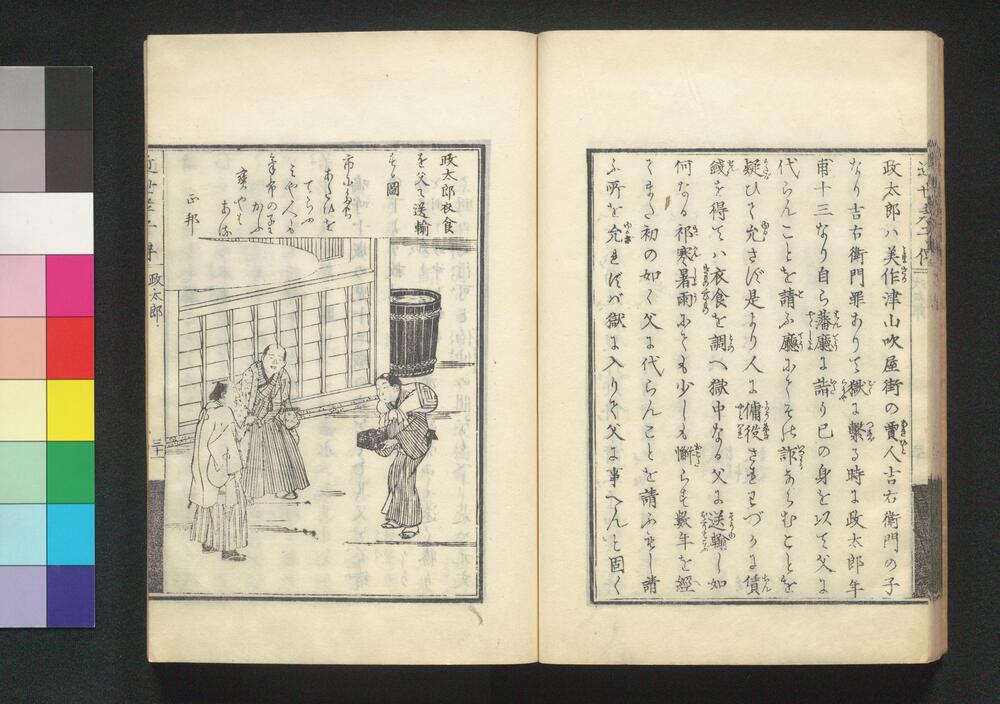 政太郎ハ美作津山吹屋街の賈人吉右衛門の子
なり吉右衛門罪ありて獄に繋る時に政太郎年
甫十三なり自ら藩廳に詣り己の身を以て父に
代らんことを請ふ廳にてその詐ならむことを
疑ひて允さず是より人に傭役されわづかに債
錢を得てハ衣食を調へ獄中なる父に送輸し如
何なる祁寒暑雨にても少しも懈らず數年を經
てまた初の如く父に代らんことを請ふもし請
ふ所を允されずバ獄に入りて父に事へんと固く
近世孝子傳
政太郎衣食
を父に送輸
する圖
正邦
政太郎
三十